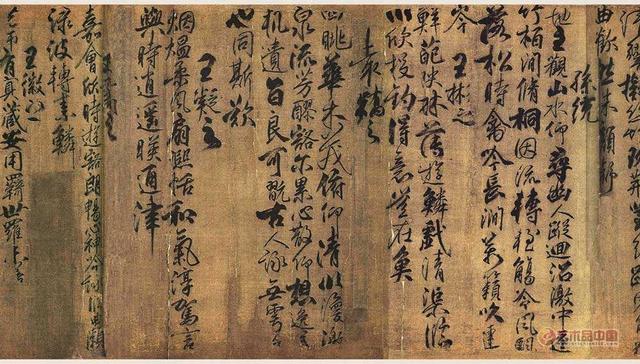 孫統
地主觀山水仰尋幽人蹤迴沼激中逵
竹柏間脩桐因流轉輕觴冷風飄
落松時禽吟長澗萬籟吹連
岑 王彬之
鮮葩映林薄遊鱗戲清渠臨
川欣投釣得意豈在魚
袁嶠之
四眺華木茂俯仰清川渙激
泉流芳醪豁尓累心散仰想逸
遺旨良可翫古人詠舞雩今
也同斯歎
王凝之
烟熅柔風扇熙怡和氣淳駕言
興時遊逍遥暎通津
嘉會欣時遊豁朗暢心神吟詠曲水瀨
渌波轉素鱗
王徽之
先師有冥藏安用羈世羅未若
艺术品中国